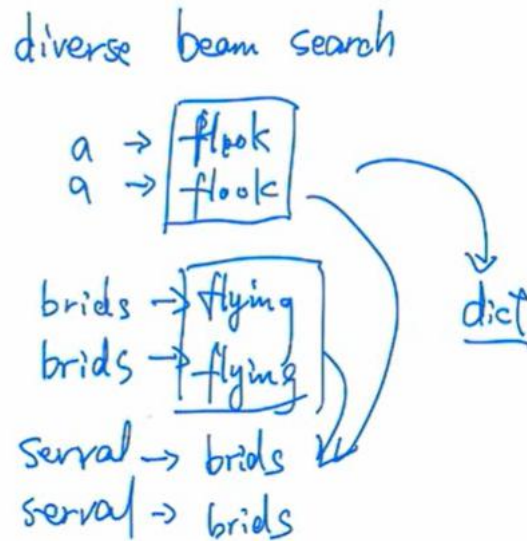 diverse beam search
a → flook
a → flook
brids → flying
brids → flying
dict
serval → brids
serval → brids